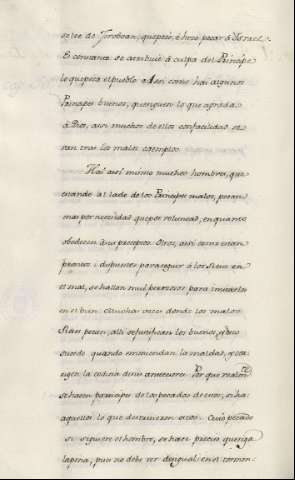 se lee de Jeroboan, que pecó, é hizo pecar à Israel.
E contraria se atribuié à culpa del Principe
lo que peca el pueblo. Assi como hai algunos
Principes buenos, que siguen lo que agrada
à Dios, assi muchos de ellos con facilidad se
van tras los malos exemplos.
Hai assi mismo muchos hombres, que
estando al lado de los Principes malos, pecan
mas por necesidad que por voluntad, en quanto
obedecen à sus preceptos. Otros, assi como estan
prontos i dispuestos para seguir à los Reies en
el mal, se hallan mui perezosos para imitarlos
en el bien. Muchas veces donde los malos
Reies pecan, alli se justifican los buenos, y esto
sucede quando enmiendan la maldad, y
la codicia de sus antecesores. Por que realm.te
se hacen participes de los pecados de estos, si ha
aquellos lo que destruieron otros. Cuio pecado
si siguiere el hombre, se hace preciso que siga
la pena, pues no debe ser desigual en el tormen-